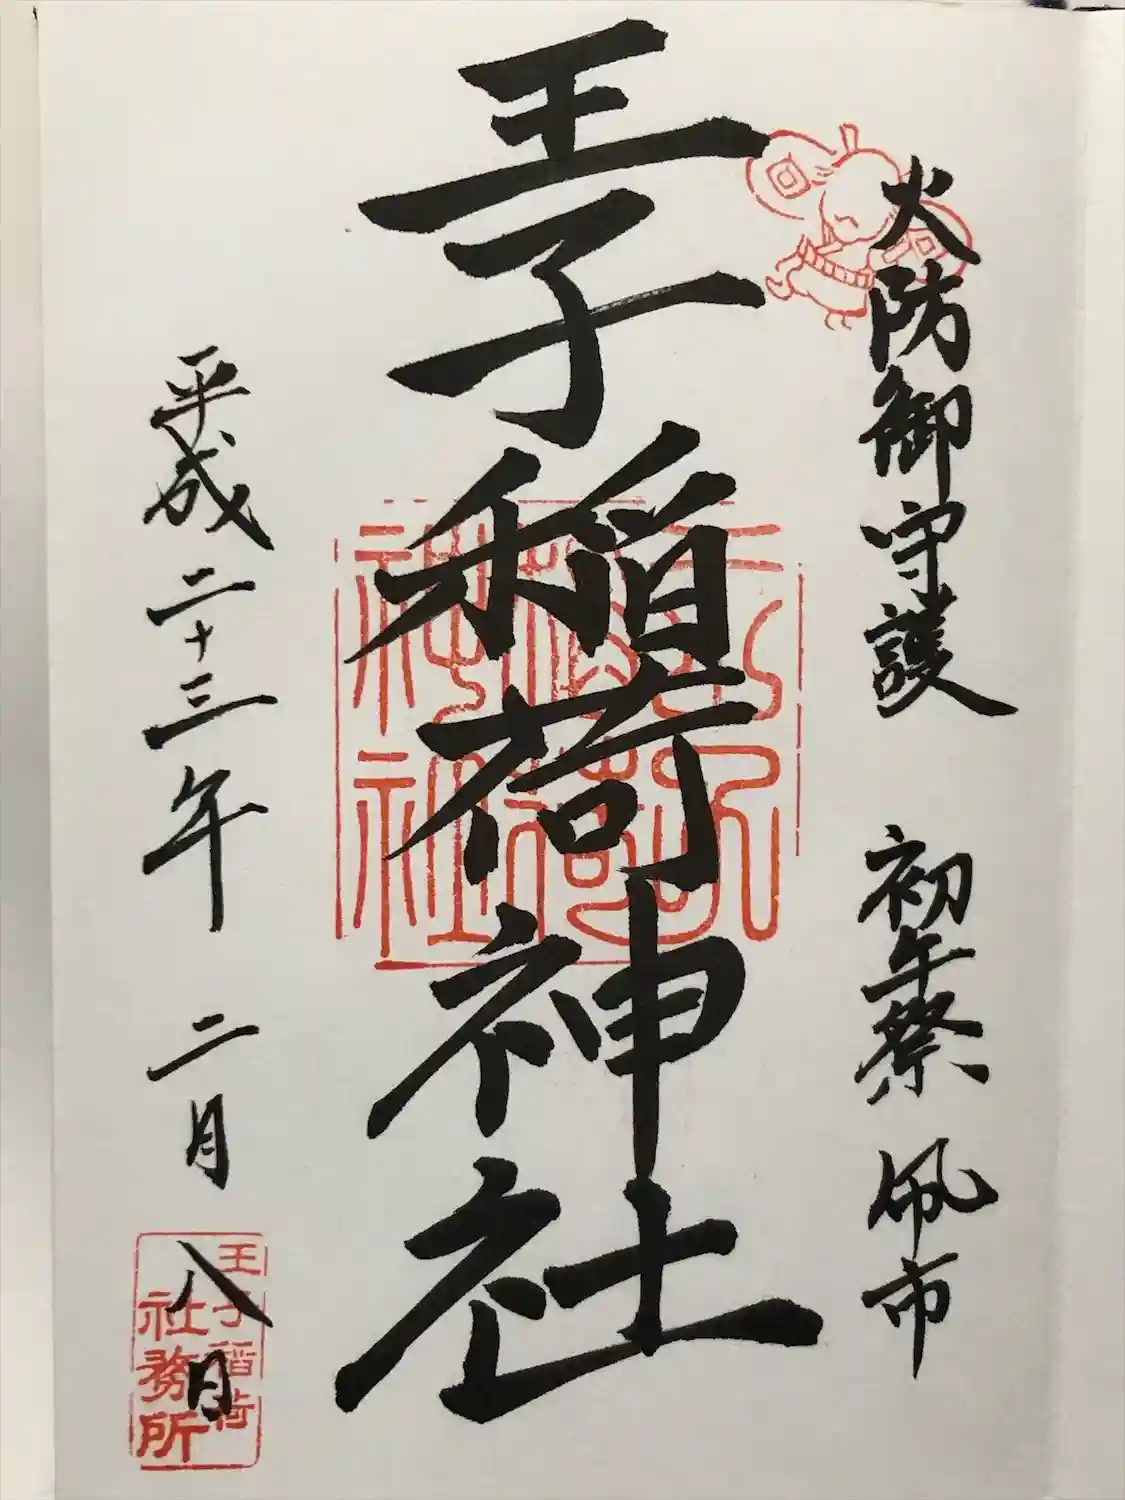 火防御守護 初午祭 凧市
王子稲荷神社
平成二十三年 二月 八日
王子稲荷
社務所